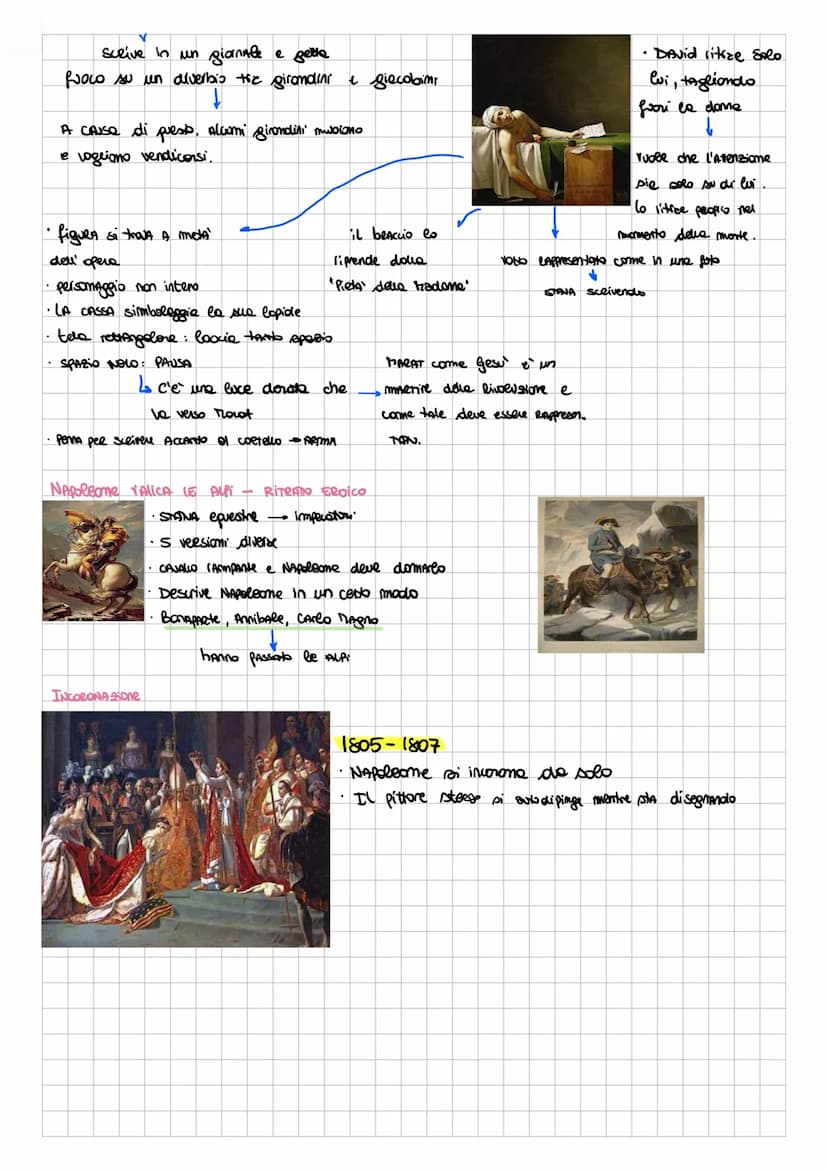 scrive in un giornale e getta
fuoco su un diverbio tra girondini e giacobini
A causa di questo, alcuni girondini muoiono
e vogliono vendicarsi.
· David ritrae solo
lui, tagliando
fuori la donna
vuole che l'attenzione
sia solo su di lui.
lo ritrae proprio nel
momento della morte.
· figura si trova a metà
dell'opera
· personaggio non intero
· la cassa simboleggia la sua lapide
· tela rettangolare: lascia tanto spazio
· spazio nero: pausa
↳ c'è una luce dorata che
va verso Marat
· penna per scrivere accanto al coltello → arma
il braccio lo
riprende dalla
"Pietà della Madonna"
rappresentato come in una foto
stava scrivendo
Marat come Gesù è un
martire della rivoluzione e
come tale deve essere rappresen.
tato.
Napoleone valica le Alpi – ritratto eroico
· statua equestre → imperatori
· 5 versioni diverse
· cavallo rampante e Napoleone deve domarlo
· Descrive Napoleone in un certo modo
· Bonaparte, Annibale, Carlo Magno
hanno passato le Alpi
Incoronazione
1805-1807
· Napoleone si incorona da solo
· Il pittore stesso si autodipinge mentre sta disegnando